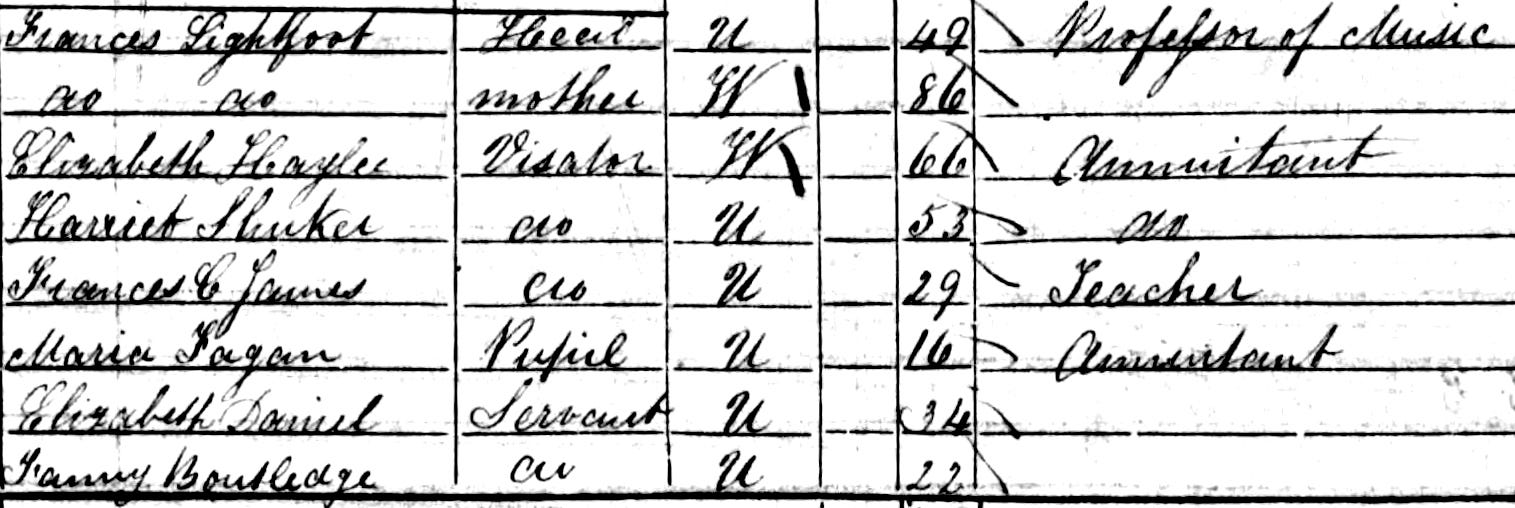 Frances Lightfoot Head U 49 Professor of Music
do do mother W 86
Elizabeth Haylee Visator W 66 Annuitant
Harriet Shuker do U 53 do
Frances C James do U 29 Teacher
Maria Fagan Pupil U 16 Annuitant
Elizabeth Daniel Servant U 34
Fanny Boutledge do U 22